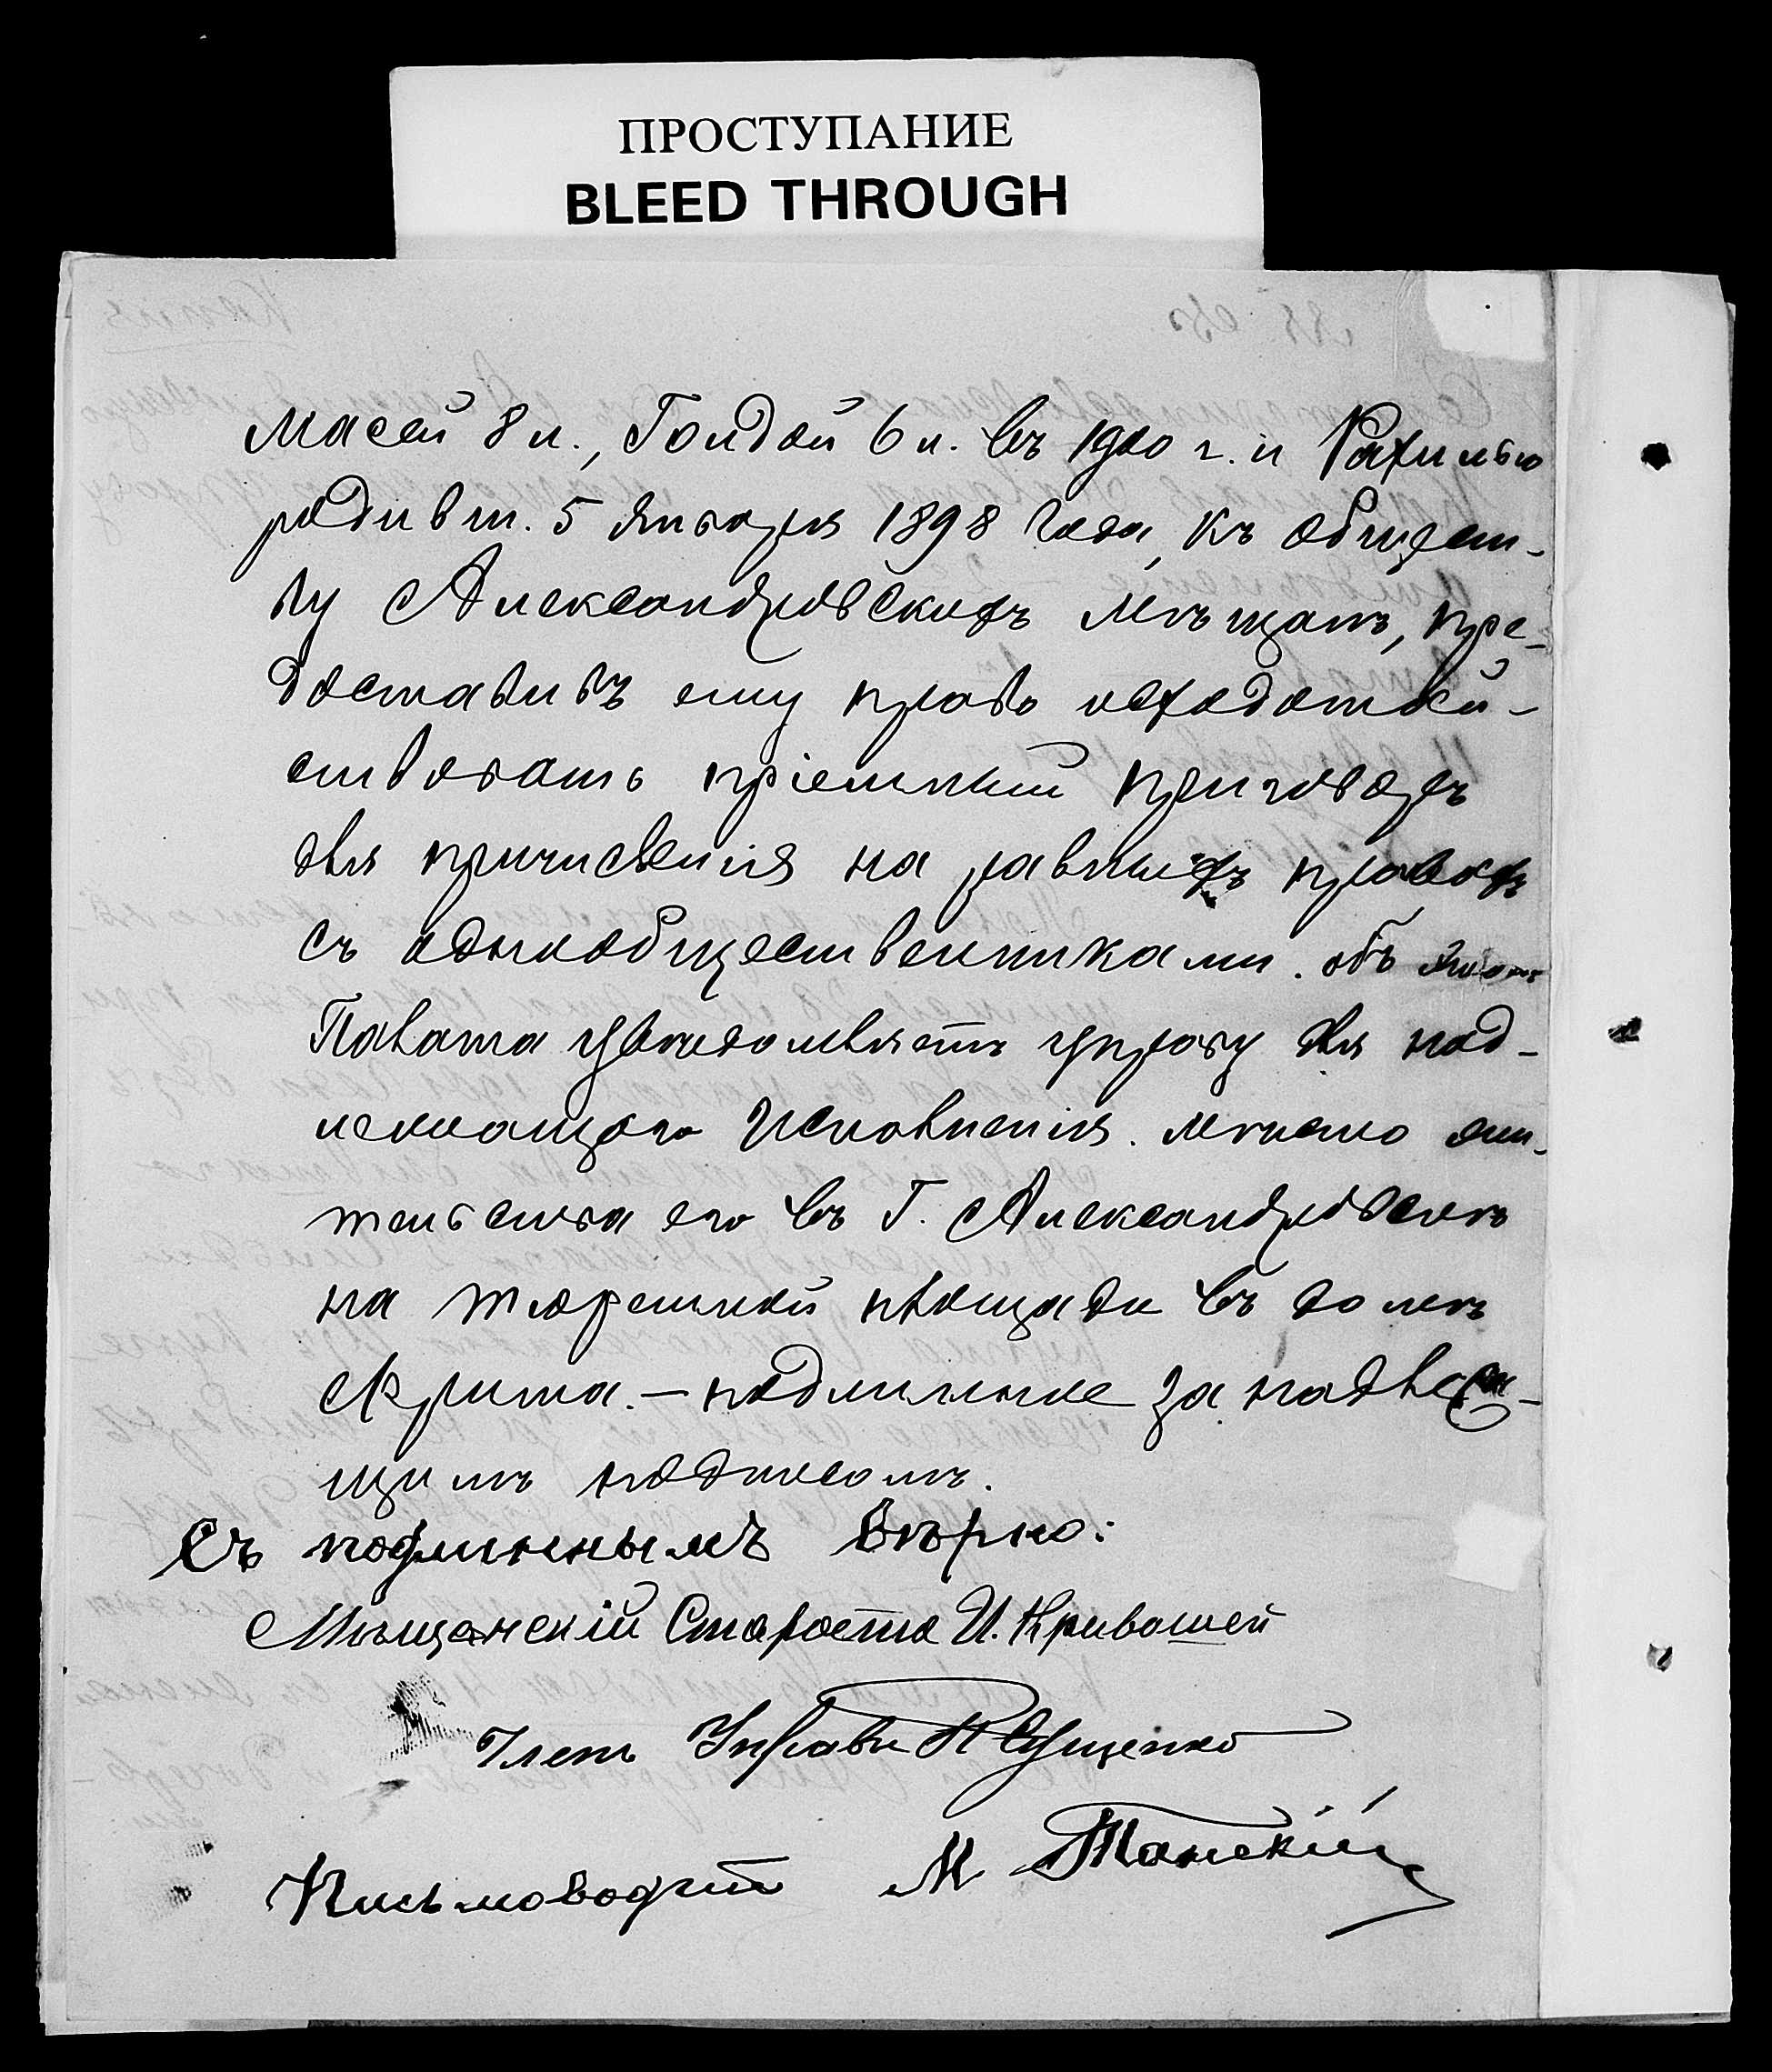 ПРОСТУПАНИЕ
BLEED THROUGH
Масей 8 л., Голдой 6 л. въ 1900 г. и Рахилью
родивш. 5 Января 1898 года, къ общест-
ву Александровскихъ мѣщанъ, пре-
доставивъ ему право исходатай-
ствовать пріемный приговоръ
для причисленія на равныхъ правахъ
съ однообщественниками. объ этомъ
Палата увѣдомляетъ управу для над-
лежащаго исполненія. мѣсто жи-
тельства его въ Г. Александровскѣ
на тюремной площади въ домѣ
подлинное за надлежа-
щимъ подписомъ.
Съ подлиннымъ вѣрно:
Мѣщанскій Староста И. Кривошей
Членъ Управы
Письмоводит М